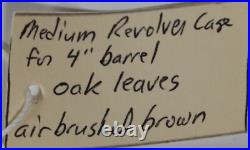 Medium Revolver Case
for 4" barrel
oak leaves
airbrushed brown